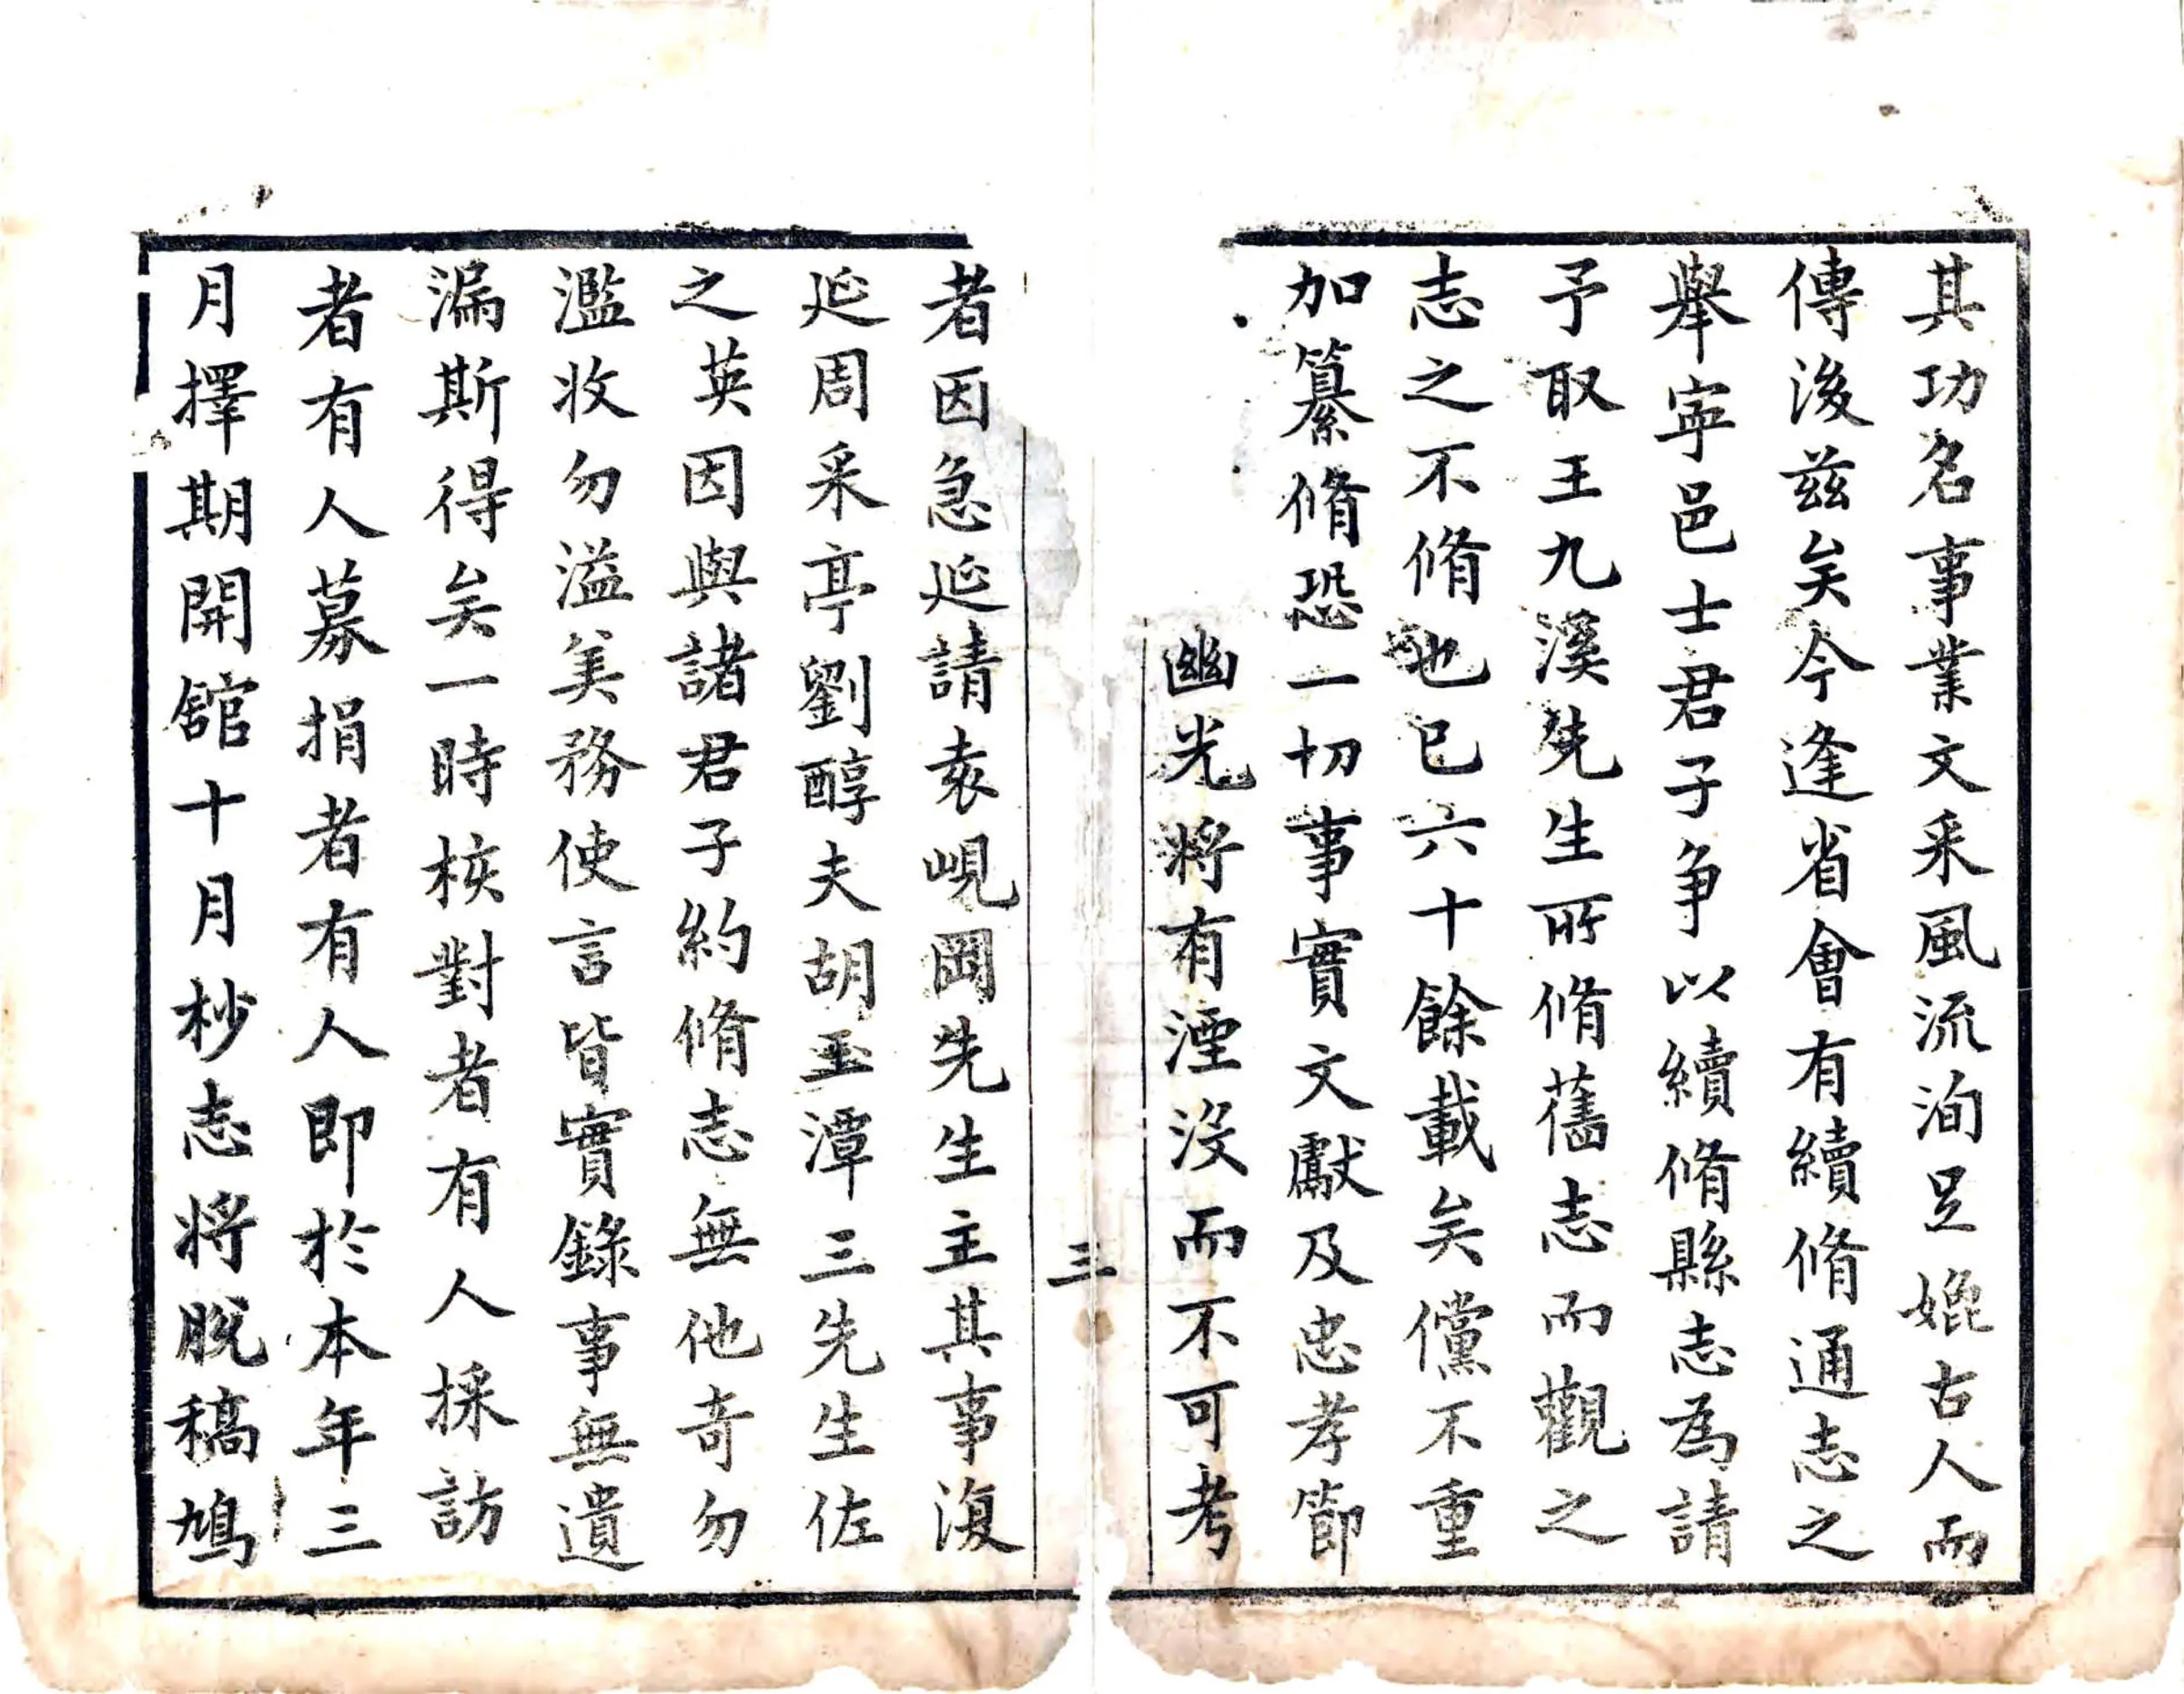 其功名事業文采風流洵足媲古人而
傳後兹矣今逢省會有續脩通志之
舉寧邑士君子争以續脩縣志為請
予取王九溪先生所脩舊志而觀之
志之不脩也已六十餘載矣儻不重
加纂脩恐一切事實文獻及忠孝節
幽光將有湮沒而不可考
三
者因急延請袁峴岡先生主其事復
延周采亭劉醇夫胡玉潭三先生佐
之英因與諸君子約脩志無他奇勿
濫收勿溢美務使言皆實錄事無遺
漏斯得矣一時核對者有人採訪
者有人募捐者有人即於本年三
月擇期開舘十月杪志將脫稿鳩